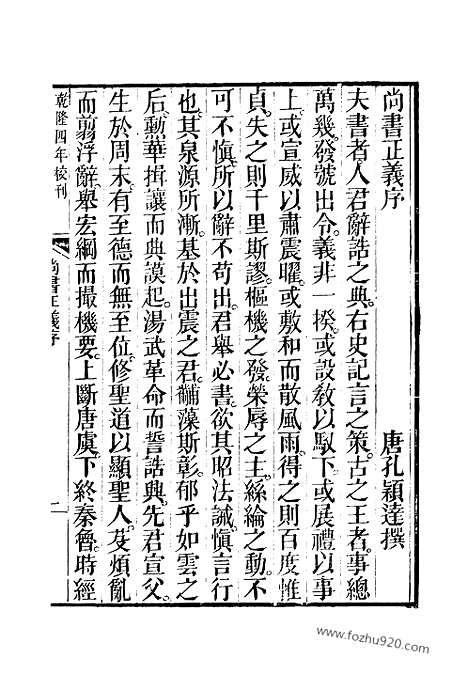 尚書正義序
唐孔穎達撰
夫書者人君辭誥之典右史記言之策古之王者事總
萬幾發號出令義非一揆或設教以馭下或展禮以事
上或宣威以肅震曜或敷和而散風雨得之則百度惟
貞失之則千里斯謬樞機之發榮辱之主絲綸之動不
可不慎所以辭不苟出君舉必書欲其昭法誡慎言行
也其泉源所漸基於出震之君黼藻斯彰郁乎如雲之
后勳華揖讓而典謨起湯武革命而誓誥興先君宣父
生於周末有至德而無至位修聖道以顯聖人芟煩亂
而翦浮辭舉宏綱而撮機要上斷唐虞下終秦魯時經
乾隆四年校刊
尚書正義序
www.fozhu920.com